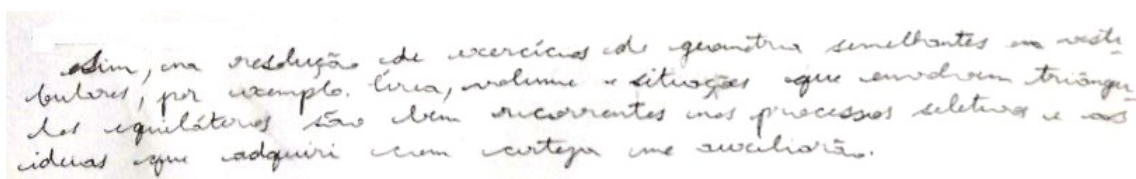 Sim, na resolução de exercícios de geometria semelhantes em vesti-
bulares, por exemplo. Área, volume e situações que envolvem triângu-
los equiláteros são bem recorrentes nos processos seletivos e as
ideias que adquiri com certeza me auxiliarão.